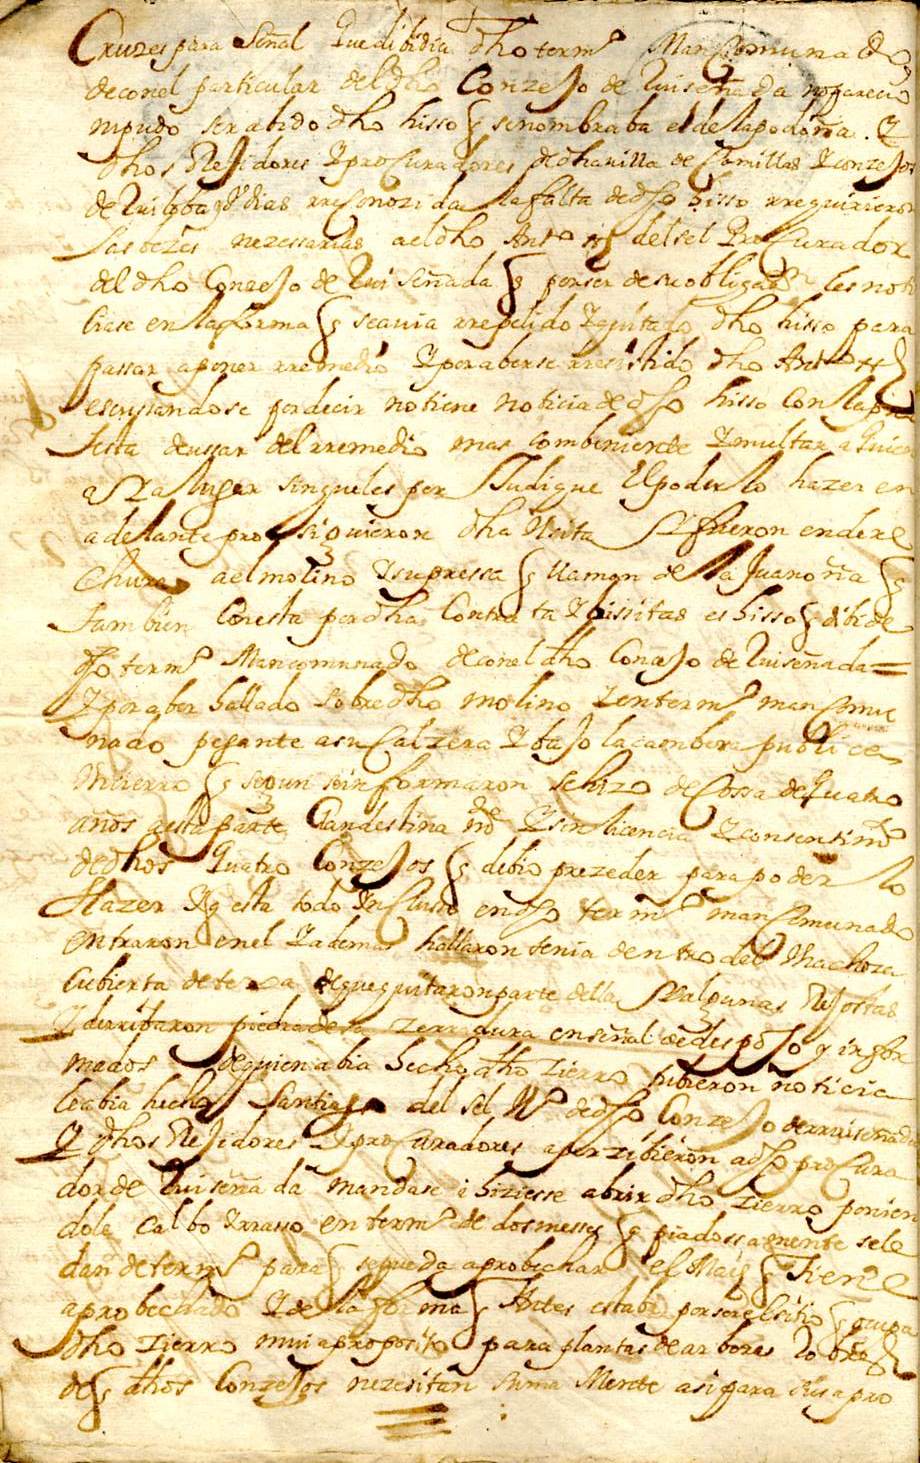 Cruzes para señal que dibidia dho termº Mancomunado
de con el particular del dho Conzejo de Ruiseñada no parecio
ni pudo ser abido dho hisso q se nombraba el de la podoña. Y
dhos Rejidores y procuradores de dha villa de Comillas y conzejos
de Ruiloba y dias rreconozida la falta de dho hisso rrequirieron
las bezes nezessarias a el dho Antº del sel Procurador
del dho Conzejo de Ruiseñada q por ser de su obligazon les noti
ciase en la forma q se avia rrepelido y quitado dho hisso para
passar a poner rremedio y por aberse rresistido dho Antº
escusandose por decir no tiene noticia de dho hisso con la pro
testa de ussar del rremedio mas combeniente y multar a quien
aya lugar sin que les perjudique el poderlo hazer en
adelante prosiguieron dha visita y fueron endere
chura a el molino y su pressa q llaman de la Juanoña q
tambien consta por dha Contrata y vissitas es hisso q dibide
dho termº Mancomunado de con el dho Concejo de Ruiseñada=
Y por aber hallado sobre dho molino y en termº mancomu
nado pegante a su Calzera y bajo la cambera publica
un zierro q segun se informaron se hizo de cossa de quatro
años a esta parte Clandestina mte y sin licencia y consentimto
de dhos quatro Conzejos q debio prezeder para poderlo
Hazer y q esta todo yncluso en dho termº mancomunado
entraron en el y ademas hallaron tenia dentro del Una choza
cubierta de teja de que quitaron parte della y algunas Rejottas
y derribaron piedra de la zerradura en señal de despojo y infor
mados de quien abia hecho dho zierro tubieron noticia
le abia hecho Santiago del sel Vº de dho Conzejo de rruiseñada
Y dhos Rejidores y procuradores aperzibieron a dho procura
dor de Ruiseñada mandase i hiziesse abrir dho zierro ponien
dole calbo y rrasso en termº de dos messes q piadossamente se le
dan de termº para q se pueda aprobechar el Maiz q tiene
aprobechado y de la forma q Antes estaba por ser el sitio q ocupa
dho zierro mui aproposito para plantas de arboles robres
de q dhos Conzejos nezesitan suma Mente asi para su apro